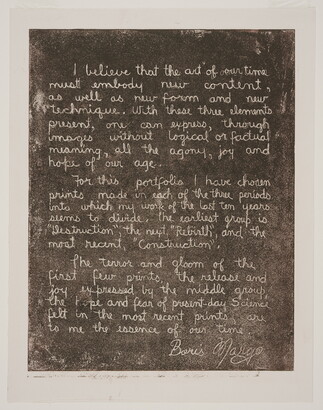 I believe that the art of our time
must embody new content,
as well as new form and new
technique. With these three elements
present, one can express, through
images without logical or factual
meaning, all the agony, joy and
hope of our age.
For this portfolio I have chosen
prints made in each of the three periods
into which my work of the last ten years
seems to divide. The earliest group is
"Destruction", the next, "Rebirth", and the
most recent, "Construction".
The terror and gloom of the
first few prints, the release and
joy expressed by the middle group,
the hope and fear of present-day Science
felt in the most recent prints, are
to me the essence of our time.
Boris Margo